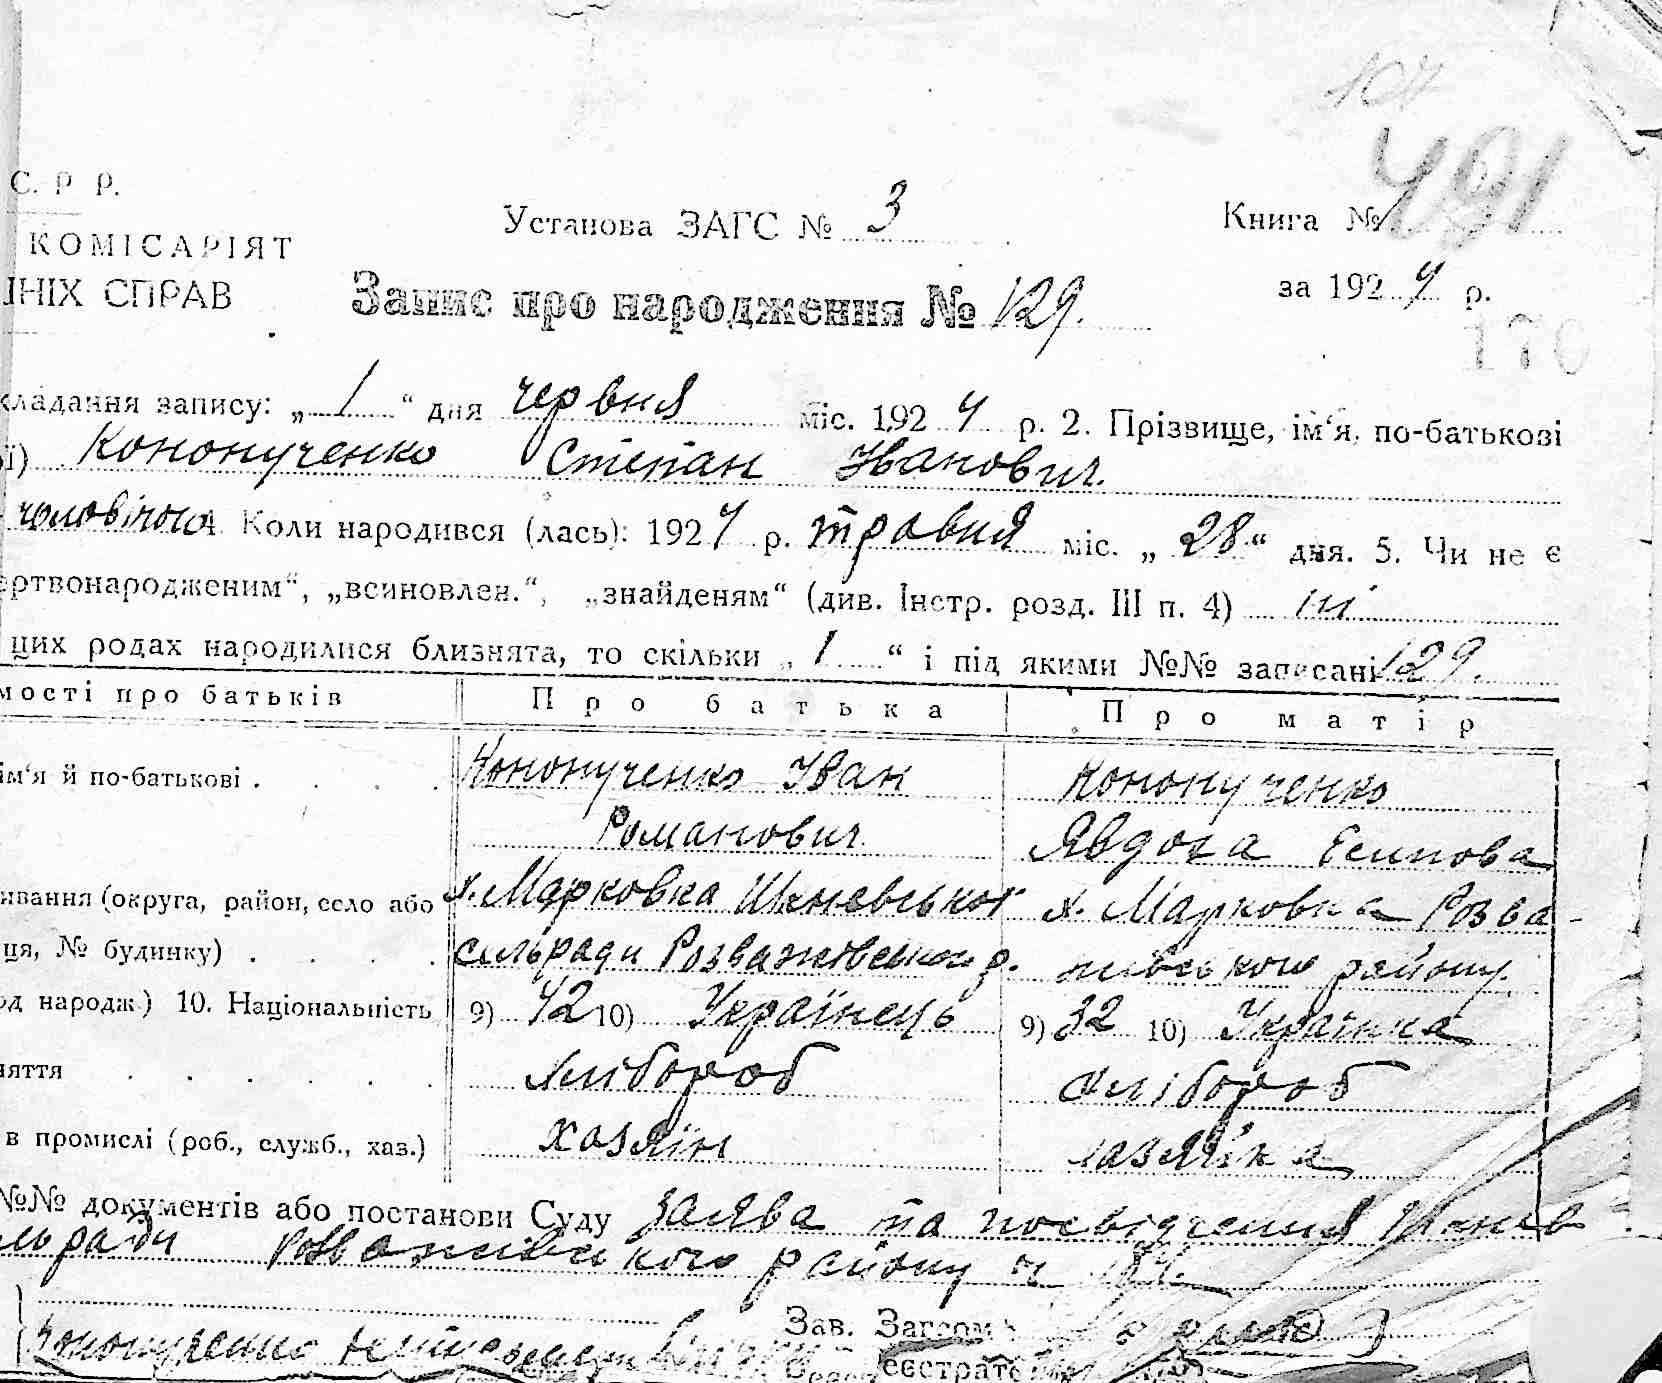 107
491
С. Р Р.
Установа ЗАГС № 3
Книга №
КОМІСАРІЯТ
ШНІХ СПРАВ
за 1924 р.
Запис про народження № 129.
170
кладання запису: „1“ дня червня міс. 1924 р. 2. Прізвище, ім‘я, по-батькові
ї) Кононученко Степан Іванович.
чоловічого 4 Коли народився (лась): 1924 р. травня міс. „28“ дня. 5. Чи не є
ертвонародженим“, „всиновлен.“, „знайденям“ (див. Інстр. розд. III п. 4) ні
цих родах народилися близнята, то скільки „1“ і під якими №№ записані 129.
мості про батьків Про батька Про матір
ім‘я й по-батькові . . . . Кононученко Іван Кононученко
Романович Явдоха Есипова
ивання (округа, район, село або х. Марковка х. Марковка Розва-
ця, № будинку) . . . . сільради Розважівськ р. жівського району.
од народж.) 10. Національність 9) 42 10) Українець 9) 32 10) Українка
няття . . . . . . Хлібороб хлібороб
в промислі (роб., служб., хаз.) хозяїн хазяйка
№№ документів або постанови Суду Заява та посвідчення
льради Розважівського району
Зав. Загсом
Кононученко
еєстрат